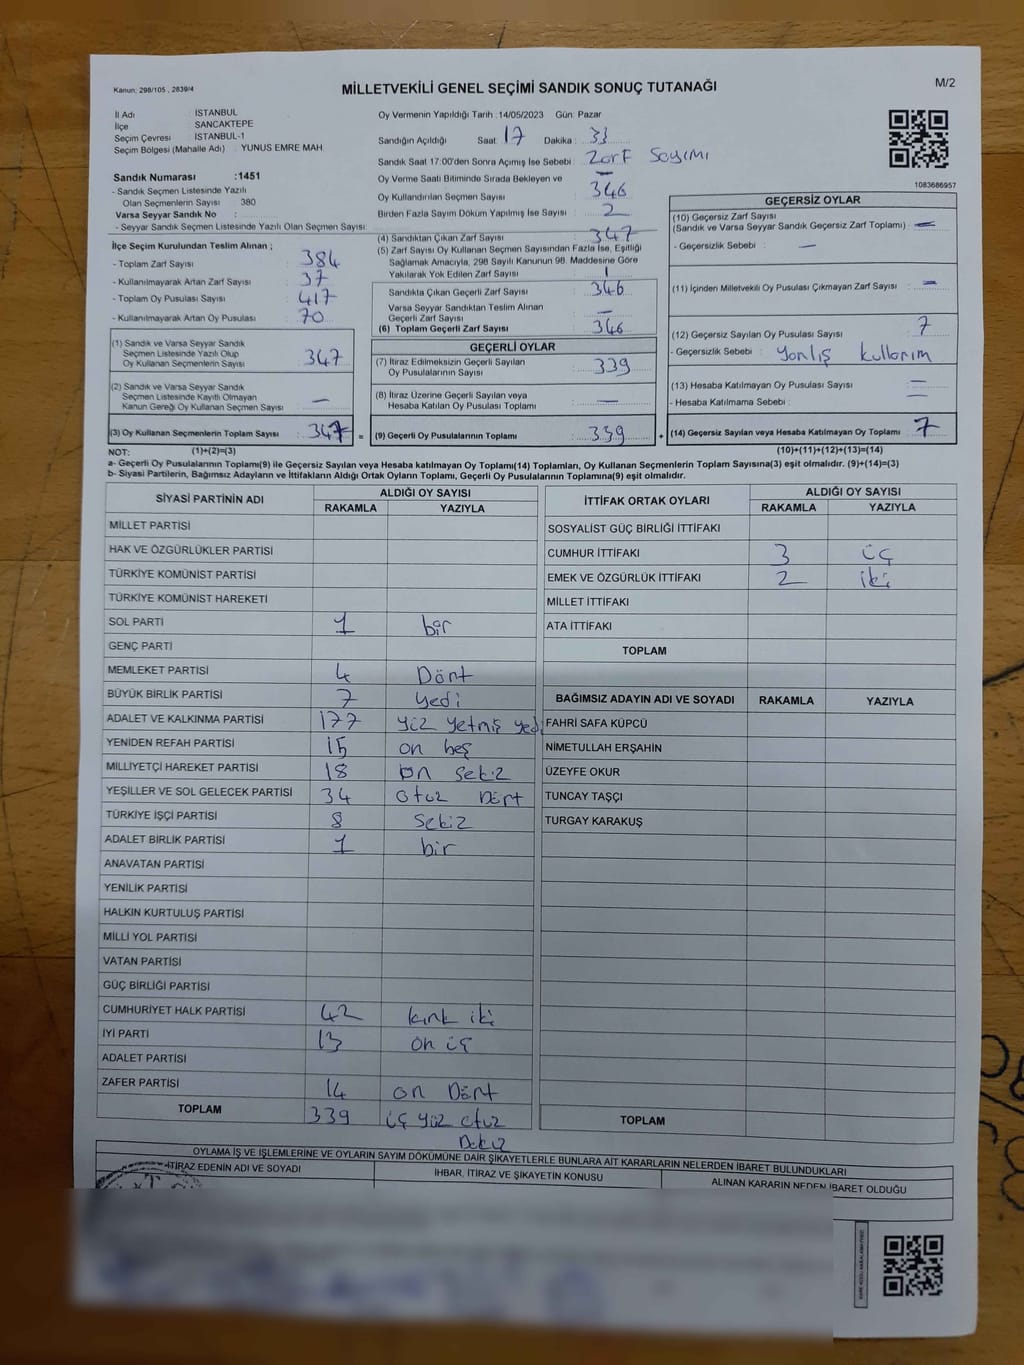 Kanun; 298/105 , 2839/4
MİLLETVEKİLİ GENEL SEÇİMİ SANDIK SONUÇ TUTANAĞI
M/2
İl Adı : İSTANBUL
İlçe : SANCAKTEPE
Seçim Çevresi : İSTANBUL-1
Seçim Bölgesi (Mahalle Adı) : YUNUS EMRE MAH.
Sandık Numarası :1451
- Sandık Seçmen Listesinde Yazılı
Olan Seçmenlerin Sayısı : 380
Varsa Seyyar Sandık No :
- Seyyar Sandık Seçmen Listesinde Yazılı Olan Seçmen Sayısı:
Oy Vermenin Yapıldığı Tarih : 14/05/2023 Gün: Pazar
Sandığın Açıldığı Saat: 17 Dakika : 33
Sandık Saat 17:00'den Sonra Açımış İse Sebebi : Zarf Sayımı
Oy Verme Saati Bitiminde Sırada Bekleyen ve : —
Oy Kullandırılan Seçmen Sayısı : 346
Birden Fazla Sayım Döküm Yapılmış İse Sayısı : 2
1083686957
İlçe Seçim Kurulundan Teslim Alınan ;
- Toplam Zarf Sayısı : 384
- Kullanılmayarak Artan Zarf Sayısı : 37
- Toplam Oy Pusulası Sayısı : 417
- Kullanılmayarak Artan Oy Pusulası : 70
(1) Sandık ve Varsa Seyyar Sandık
Seçmen Listesinde Yazılı Olup
Oy Kullanan Seçmenlerin Sayısı : 347
(2) Sandık ve Varsa Seyyar Sandık
Seçmen Listesinde Kayıtlı Olmayan
Kanun Gereği Oy Kullanan Seçmen Sayısı : —
(3) Oy Kullanan Seçmenlerin Toplam Sayısı : 347 =
(4) Sandıktan Çıkan Zarf Sayısı : 347
(5) Zarf Sayısı Oy Kullanan Seçmen Sayısından Fazla İse, Eşitliği
Sağlamak Amacıyla, 298 Sayılı Kanunun 98. Maddesine Göre
Yakılarak Yok Edilen Zarf Sayısı : 1
Sandıkta Çıkan Geçerli Zarf Sayısı : 346
Varsa Seyyar Sandıktan Teslim Alınan
Geçerli Zarf Sayısı : —
(6) Toplam Geçerli Zarf Sayısı : 346
GEÇERLİ OYLAR
(7) İtiraz Edilmeksizin Geçerli Sayılan
Oy Pusulalarının Sayısı : 339
(8) İtiraz Üzerine Geçerli Sayılan veya
Hesaba Katılan Oy Pusulası Toplamı : —
(9) Geçerli Oy Pusulalarının Toplamı : 339 +
GEÇERSİZ OYLAR
(10) Geçersiz Zarf Sayısı
(Sandık ve Varsa Seyyar Sandık Geçersiz Zarf Toplamı) : —
- Geçersizlik Sebebi : —
(11) İçinden Milletvekili Oy Pusulası Çıkmayan Zarf Sayısı : —
(12) Geçersiz Sayılan Oy Pusulası Sayısı : 7
- Geçersizlik Sebebi : Yanlış kullanım
(13) Hesaba Katılmayan Oy Pusulası Sayısı : —
- Hesaba Katılmama Sebebi : —
(14) Geçersiz Sayılan veya Hesaba Katılmayan Oy Toplamı : 7
NOT: (1)+(2)=(3)
(10)+(11)+(12)+(13)=(14)
a- Geçerli Oy Pusulalarının Toplamı(9) ile Geçersiz Sayılan veya Hesaba katılmayan Oy Toplamı(14) Toplamları, Oy Kullanan Seçmenlerin Toplam Sayısına(3) eşit olmalıdır. (9)+(14)=(3)
b- Siyasi Partilerin, Bağımsız Adayların ve İttifakların Aldığı Ortak Oyların Toplamı, Geçerli Oy Pusulalarının Toplamına(9) eşit olmalıdır.
SİYASİ PARTİNİN ADI ALDIĞI OY SAYISI
RAKAMLA YAZIYLA
MİLLET PARTİSİ
HAK VE ÖZGÜRLÜKLER PARTİSİ
TÜRKİYE KOMÜNİST PARTİSİ
TÜRKİYE KOMÜNİST HAREKETİ
SOL PARTİ 1 bir
GENÇ PARTİ
MEMLEKET PARTİSİ 4 Dört
BÜYÜK BİRLİK PARTİSİ 7 yedi
ADALET VE KALKINMA PARTİSİ 177 yüz yetmiş yedi
YENİDEN REFAH PARTİSİ 15 on beş
MİLLİYETÇİ HAREKET PARTİSİ 18 on sekiz
YEŞİLLER VE SOL GELECEK PARTİSİ 34 otuz Dört
TÜRKİYE İŞÇİ PARTİSİ 8 Sekiz
ADALET BİRLİK PARTİSİ 1 bir
ANAVATAN PARTİSİ
YENİLİK PARTİSİ
HALKIN KURTULUŞ PARTİSİ
MİLLİ YOL PARTİSİ
VATAN PARTİSİ
GÜÇ BİRLİĞİ PARTİSİ
CUMHURİYET HALK PARTİSİ 42 kırk iki
İYİ PARTİ 13 on üç
ADALET PARTİSİ
ZAFER PARTİSİ 14 on Dört
TOPLAM 339 üç yüz otuz
Dokuz
İTTİFAK ORTAK OYLARI ALDIĞI OY SAYISI
RAKAMLA YAZIYLA
SOSYALİST GÜÇ BİRLİĞİ İTTİFAKI
CUMHUR İTTİFAKI 3 üç
EMEK VE ÖZGÜRLÜK İTTİFAKI 2 iki
MİLLET İTTİFAKI
ATA İTTİFAKI
TOPLAM
BAĞIMSIZ ADAYIN ADI VE SOYADI RAKAMLA YAZIYLA
FAHRİ SAFA KÜPCÜ
NİMETULLAH ERŞAHİN
ÜZEYFE OKUR
TUNCAY TAŞÇI
TURGAY KARAKUŞ
TOPLAM
OYLAMA İŞ VE İŞLEMLERİNE VE OYLARIN SAYIM DÖKÜMÜNE DAİR ŞİKAYETLERLE BUNLARA AİT KARARLARIN NELERDEN İBARET BULUNDUKLARI
İTİRAZ EDENİN ADI VE SOYADI
İHBAR, İTİRAZ VE ŞİKAYETİN KONUSU
ALINAN KARARIN NEDEN İBARET OLDUĞU